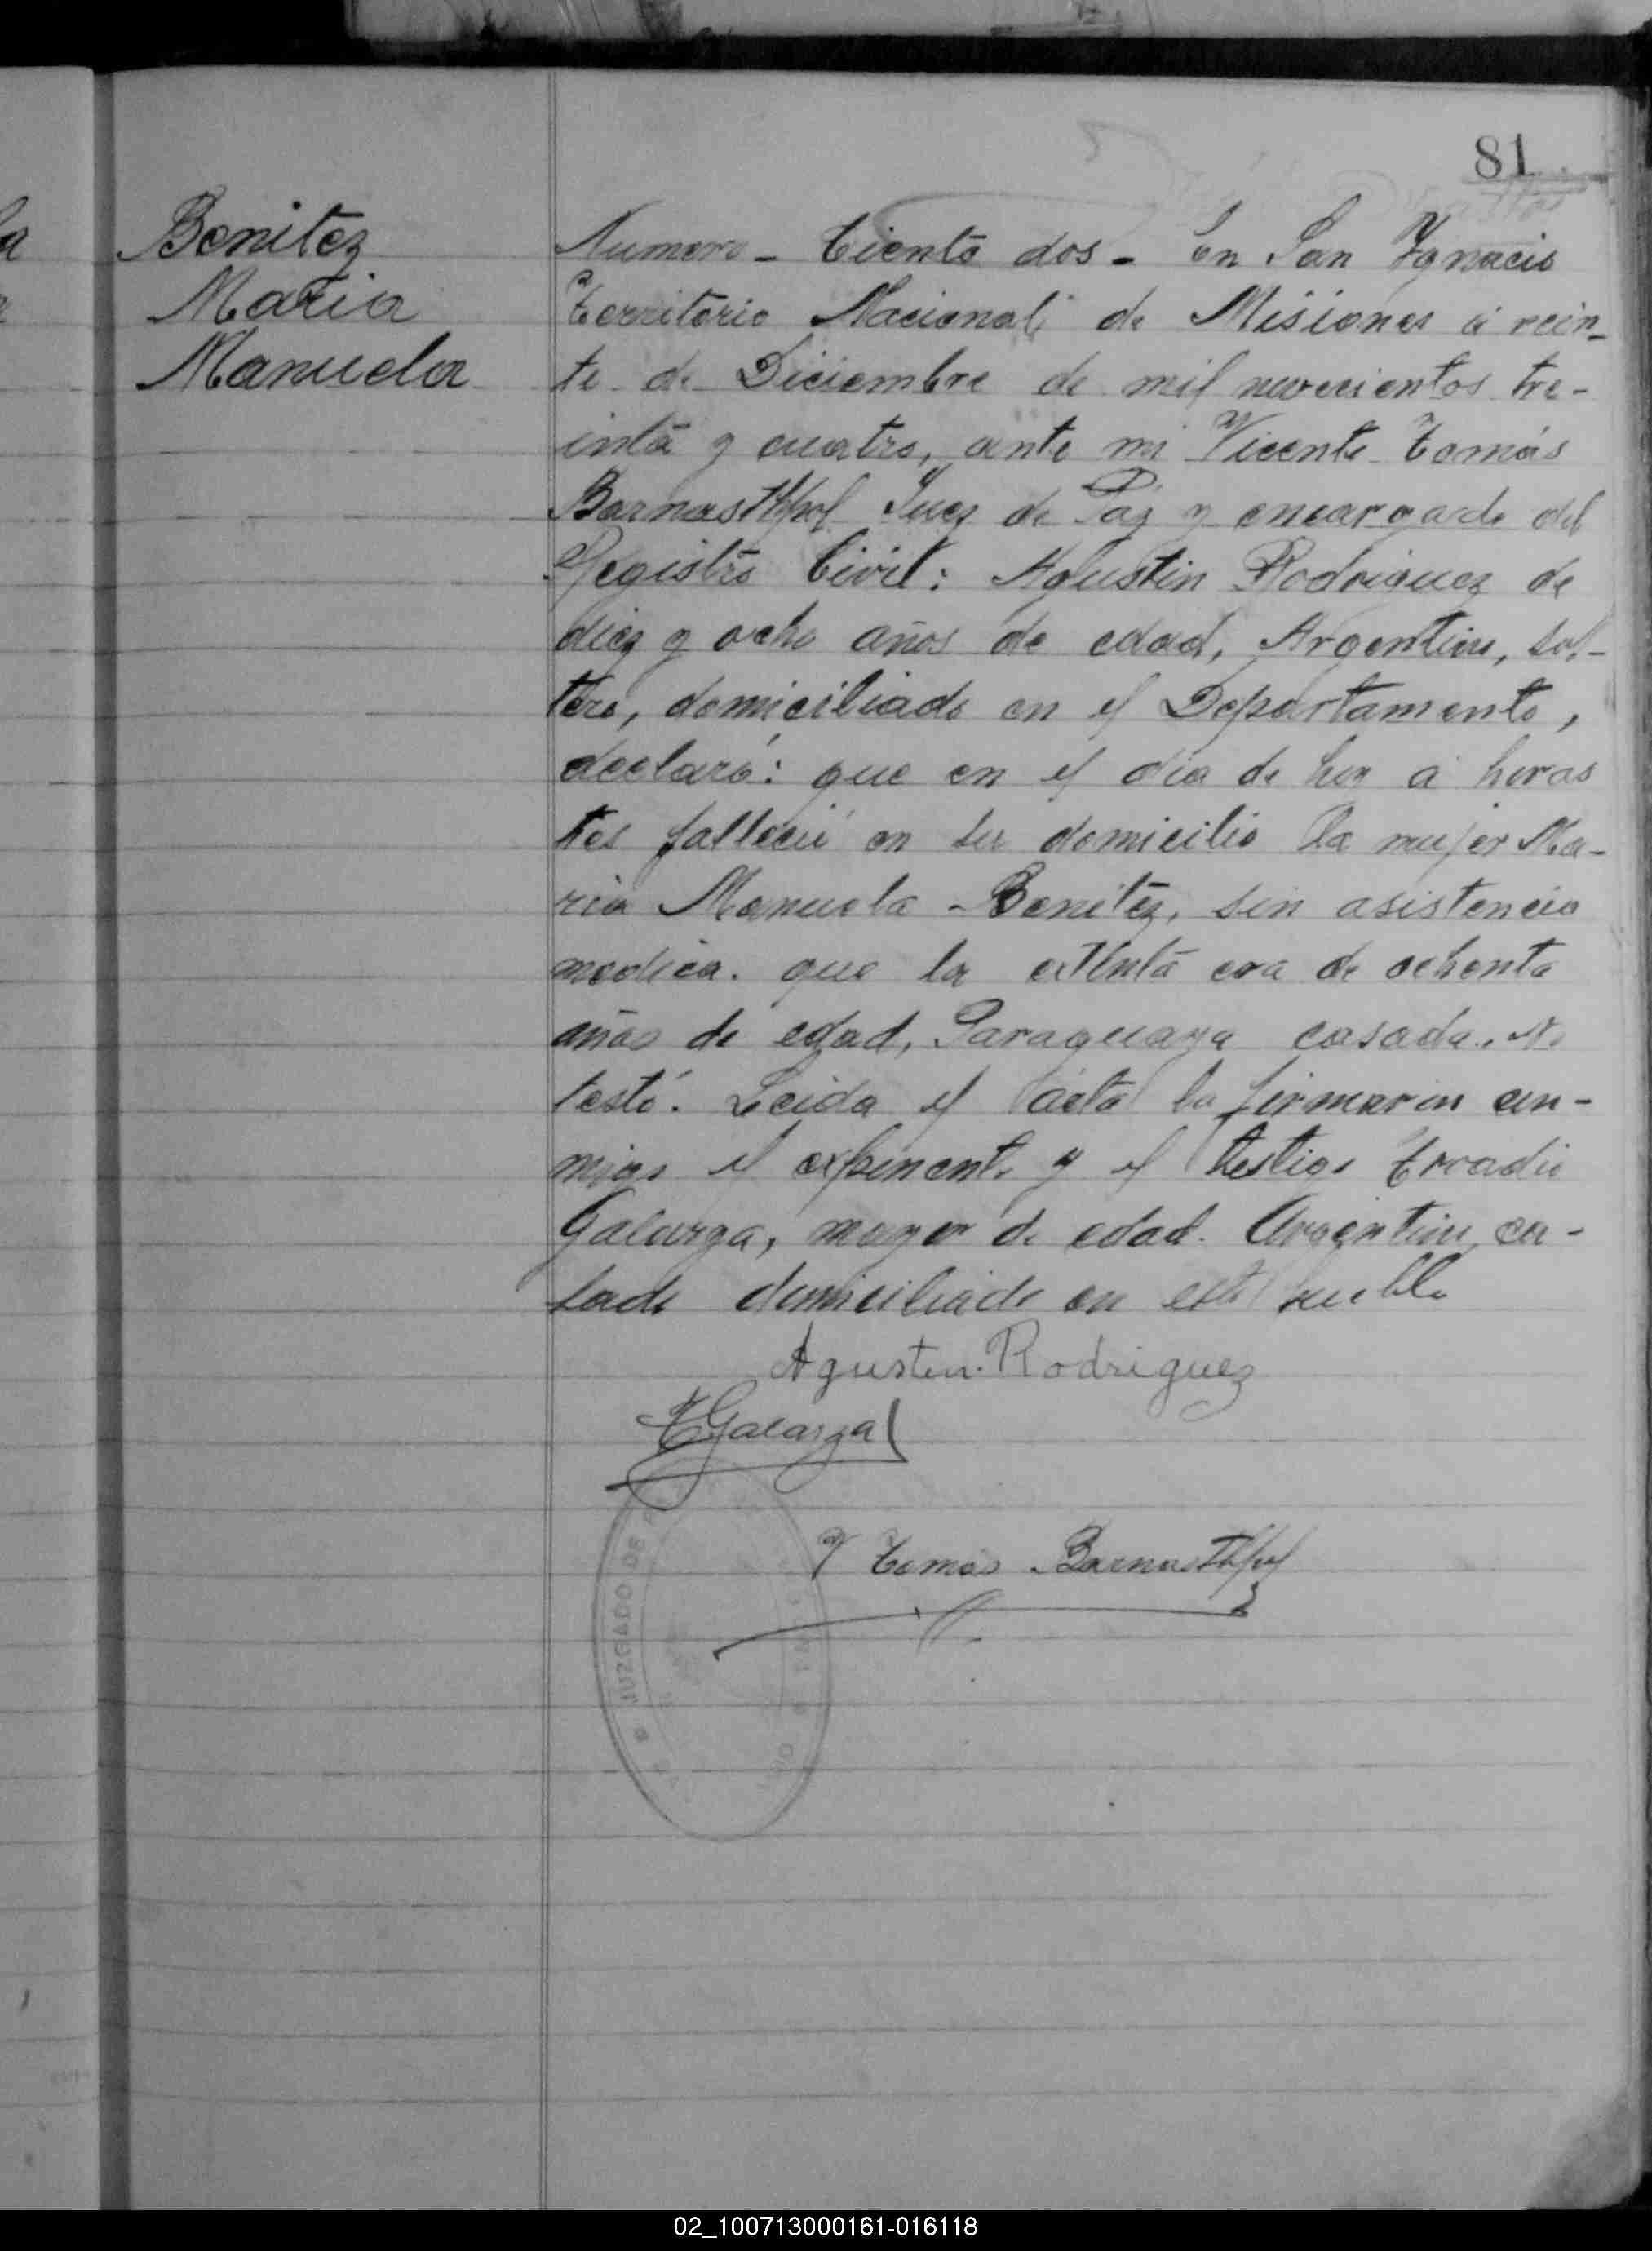 81
Benitez
Maria
Manuela
Numero - Ciento dos - En San Ygnacio
Territorio Nacional de Misiones á vein-
te de Diciembre de mil novecientos tre-
inta y cuatro, ante mi Vicente Tomás
Juez de Paz y encargado del
Registro Civil: Agustin Rodriguez de
diez y ocho años de edad, Argentino, sol-
tero, domiciliado en el Departamento,
declaró: que en el dia de hoy á horas
tres falleció en su domicilio la mujer Ma-
ria Manuela Benitez, sin asistencia
medica. que la extinta era de ochenta
años de edad, Paraguaya casada. No
testó. Leida el acta la firmaron con-
migo el exponente y el testigo Eroadio
Galarza, mayor de edad. Argentino, ca-
sado domiciliado en este pueblo
Agustin Rodriguez
Galarza
V Tomás
JUZGADO DE
02_100713000161-016118